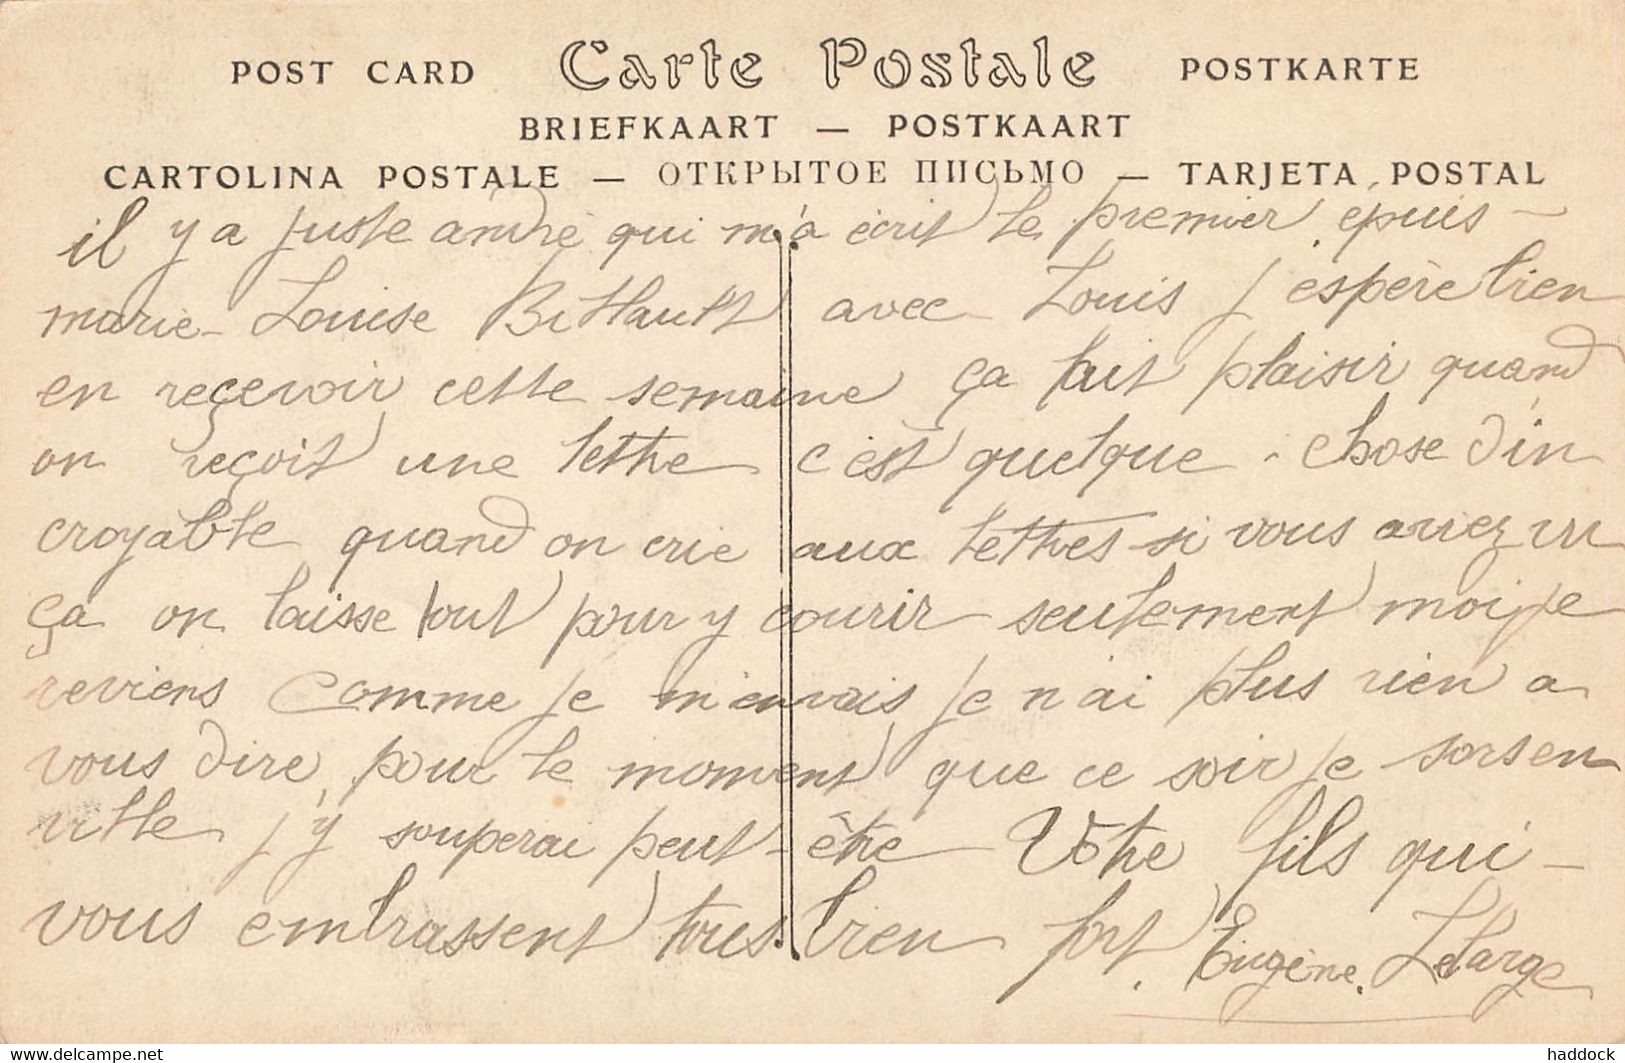 POST CARD Carte Postale POSTKARTE
BRIEFKAART — POSTKAART
CARTOLINA POSTALE — ОТКРЫТОЕ ПИСЬМО — TARJETA POSTAL
il y a juste andré qui m'a écrit le premier, épuis
marie-Louise avec Louis j'espère bien
en reçevoir cette semaine ça fait plaisir quand
on reçoit une lettre c'est quelque-chose d'in
croyable quand on crie aux lettres si vous aviez vu
ça on laisse tout pour y courir seulement moi je
reviens comme je m'envais je n'ai plus rien a
vous dire pour le moment que ce soir je sors en
ville j'y souperai peut-être Votre fils qui
vous embrassent tous bien fort. Eugène. Lelarge
www.delcampe.net
haddock